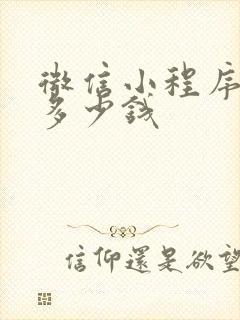 微信小程序
多少钱
信仰還是欲望